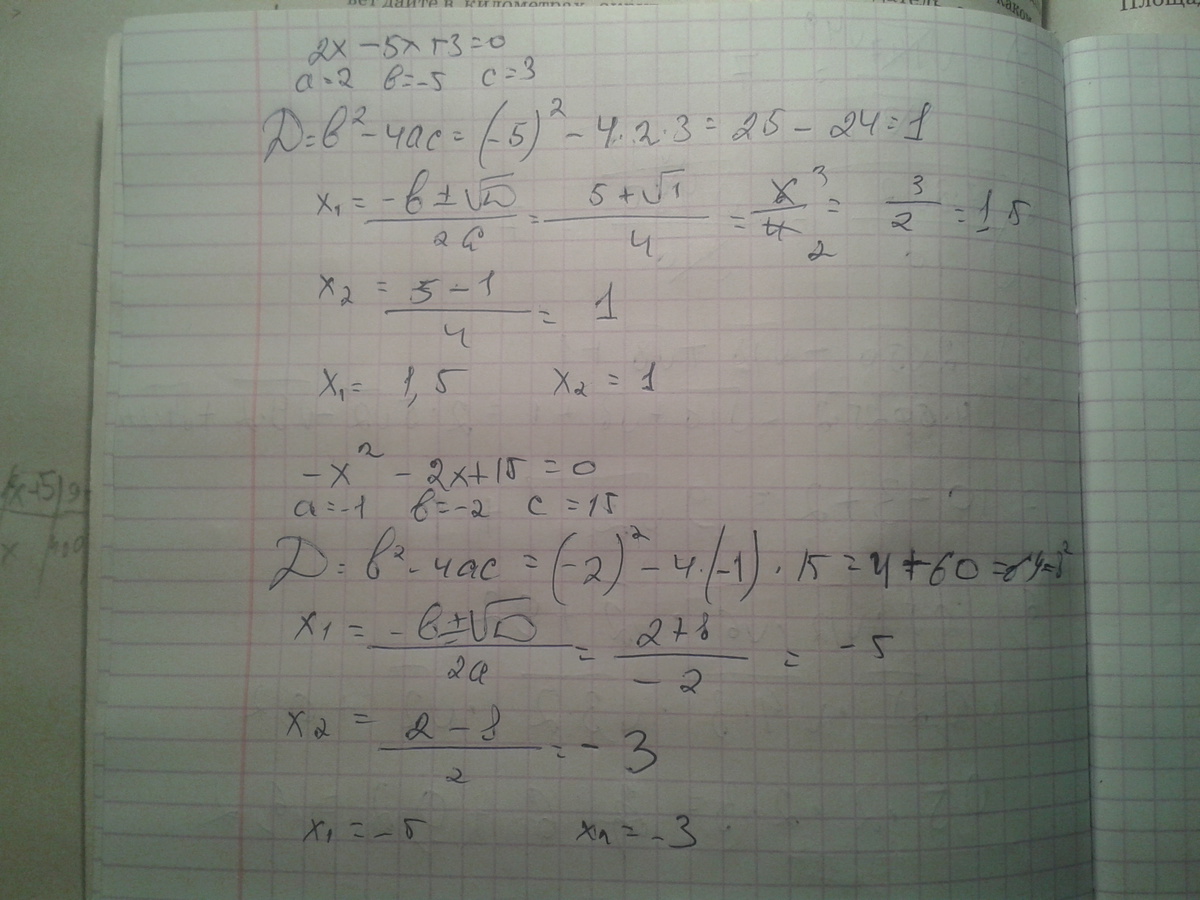 вет дайте в километрах
Площа
2x - 5x + 3 = 0
a = 2 в = -5 c = 3
Д = в² - 4ac = (-5)² - 4·2·3 = 25 - 24 = 1
x₁ = (-в ± √D)/2a = (5 + √1)/4 = 6̸ 3/4̸ 2 = 3/2 = 1,5
x₂ = (5 - 1)/4 = 1
x₁ = 1,5 x₂ = 1
-x² - 2x + 15 = 0
a = -1 в = -2 c = 15
Д = в² - 4ac = (-2)² - 4·(-1)·15 = 4 + 60 = 64 = 8²
x₁ = (-в ± √D)/2a = (2 + 8)/-2 = -5
x₂ = (2 - 8)/2 = -3
x₁ = -5 x₂ = -3